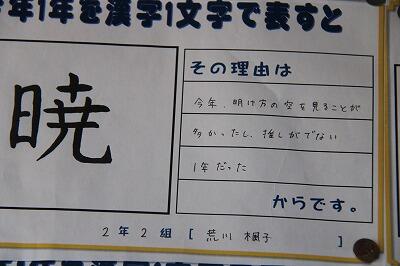 今年1年を漢字1文字で表すと
暁
その理由は
今年、明け方の空を見ることが
多かったし、推しがでない
1年だった
からです。
2年2組 [ 荒川 楓子 ]